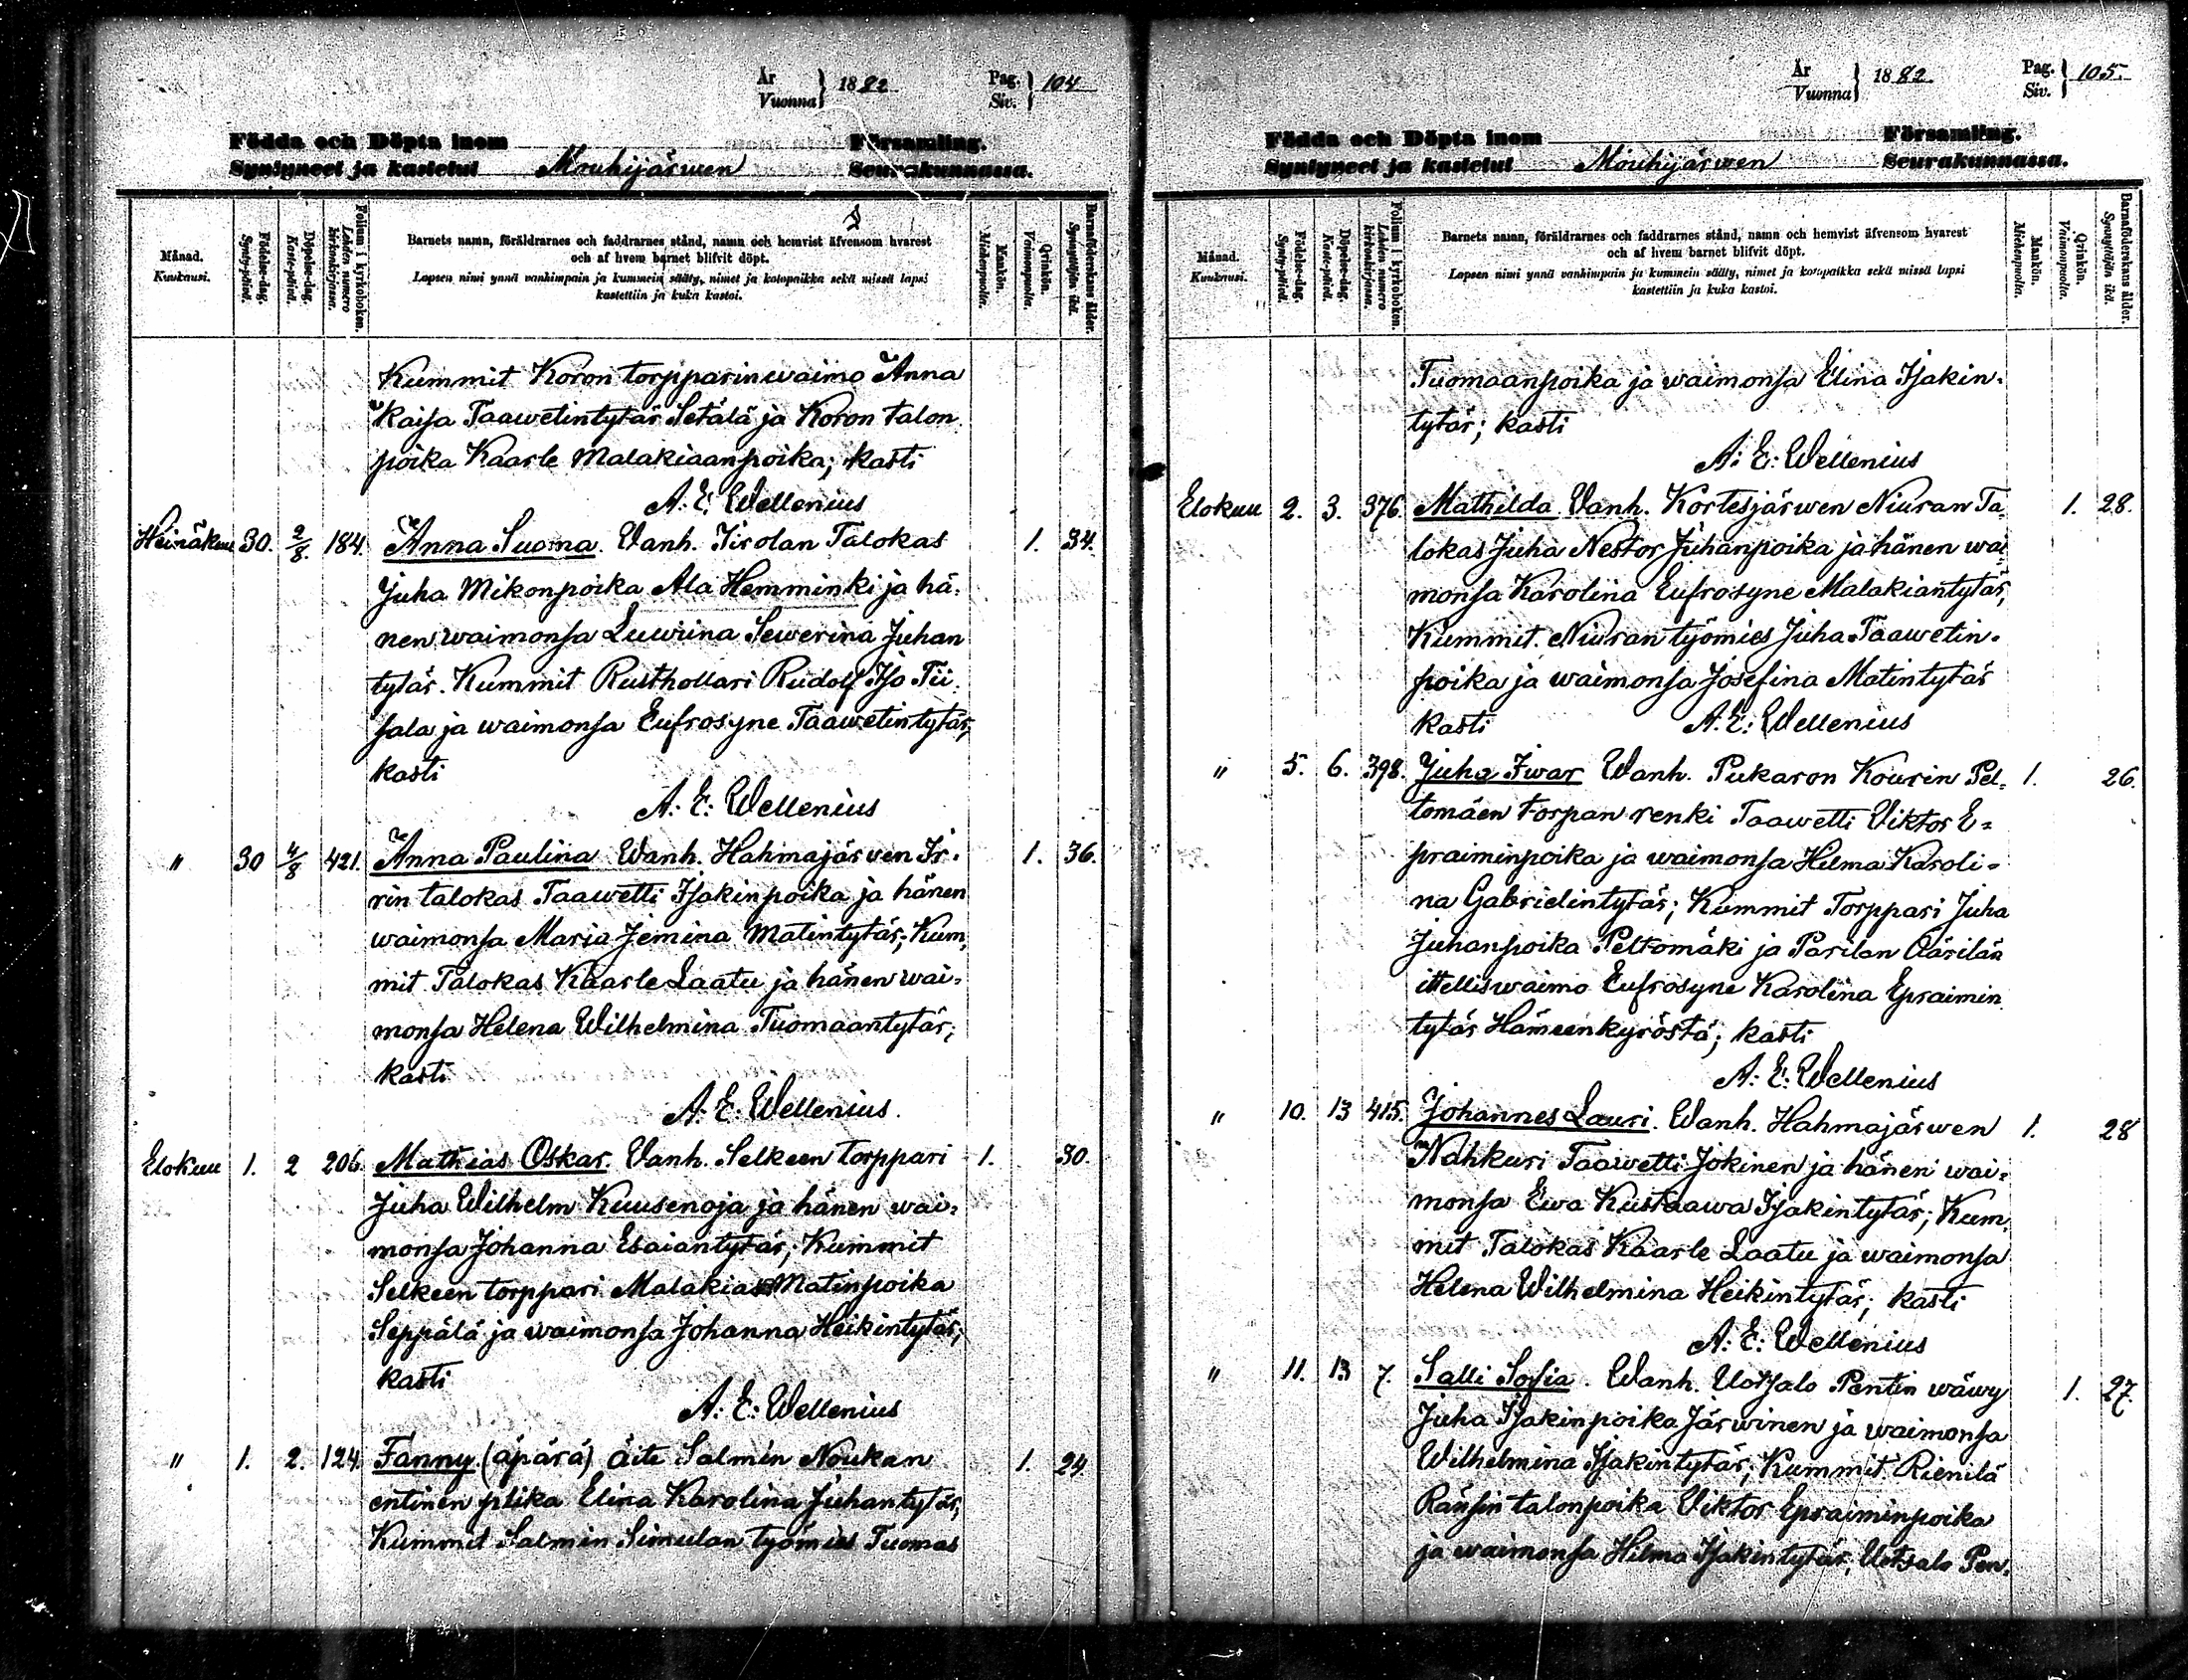 År
Vuonna } 1882
Pag.
Siv. } 104
Födda och Döpta inom Församling.
Syntyneet ja kastetut Mouhijärwen Seurakunnassa.
Månad.
Kuukausi.
Födelse-dag.
Synty-päivä.
Döpelse-dag.
Kaste-päivä.
Folium i kyrkoboken.
Lehden numero kirkonkirjassa.
Barnets namn, föräldrarnes och faddrarnes stånd, namn och hemvist äfvensom hvarest
och af hvem barnet blifvit döpt.
Lapsen nimi ynnä vanhimpain ja kummein sääty, nimet ja kotopaikka sekä missä lapsi
kastettiin ja kuka kastoi.
Mankön.
Miehenpuolta.
Qvinkön.
Vaimonpuolta.
Barnaföderskans ålder.
Synnyttäjän ikä.
Kummit Koron torpparinwaimo Anna
Kaisa Taawetintytär Setälä ja Koron talon
poika Kaarle Malakiaanpoika; kasti
A. E. Wellenius
Heinäkuu 30. 2/8. 184. Anna Suoma. Vanh. Tirolan Talokas 1. 34.
Juha Mikonpoika Ala Hemminki ja hä-
nen waimonsa Luwiina Sewerina Juhan
tytär. Kummit Rusthollari Rudolf Iso Tii
sala ja waimonsa Eufrosyne Taawetintytär;
kasti
A. E. Wellenius
" 30 4/8 421. Anna Paulina Wanh. Hahmajärwen Ir- 1. 36.
rin talokas Taawetti Isakinpoika ja hänen
waimonsa Maria Jemina Matintytär; Kum,
mit Talokas Kaarle Laatu ja hänen wai-
monsa Helena Wilhelmina Tuomaantytär;
kasti
A. E. Wellenius.
Elokuu 1. 2 206. Mathias Oskar. Vanh. Selkeen torppari 1. 30.
Juha Wilhelm Kuusenoja ja hänen wai-
monsa Johanna Esaiantytär; Kummit
Selkeen torppari Malakias Matinpoika
Seppälä ja waimonsa Johanna Heikintytär;
kasti
A. E. Wellenius
" 1. 2. 124. Fanny (äpärä) äite Salmin Noukan 1. 24.
entinen piika Elina Karolina Juhantytär,
Kummit Salmin Simulan työmies Tuomas
År
Vuonna } 1882.
Pag.
Siv. } 105.
Födda och Döpta inom Församling.
Syntyneet ja kastetut Mouhijärwen Seurakunnassa.
Månad.
Kuukausi.
Födelse-dag.
Synty-päivä.
Döpelse-dag.
Kaste-päivä.
Folium i kyrkoboken.
Lehden numero kirkonkirjassa.
Barnets namn, föräldrarnes och faddrarnes stånd, namn och hemvist äfvensom hvarest
och af hvem barnet blifvit döpt.
Lapsen nimi ynnä vanhimpain ja kummein sääty, nimet ja kotopaikka sekä missä lapsi
kastettiin ja kuka kastoi.
Mankön.
Miehenpuolta.
Qvinkön.
Vaimonpuolta.
Barnaföderskans ålder.
Synnyttäjän ikä.
Tuomaanpoika ja waimonsa Elina Isakin-
tytär; kasti
A: E: Wellenius
Elokuu 2. 3. 376. Mathilda Vanh. Kortesjärwen Niuran Ta- 1. 28.
lokas Juha Nestor Juhanpoika ja hänen wai-
monsa Karolina Eufrosyne Malakiantytär,
Kummit. Niuran työmies Juha Taawetin-
poika ja waimonsa Josefina Matintytär
kasti A. E: Wellenius
" 5. 6. 398. Juha Iwar Wanh. Pukaron Kourin Pel- 1. 26.
tomäen torpan renki Taawetti Viktor E-
praiminpoika ja waimonsa Hilma Karoli-
na Gabrielintytär; Kummit Torppari Juha
Juhanpoika Peltomäki ja Parilan Äärilän
itelliswaimo Eufrosyne Karolina Epraimin
tytär Hämeenkyröstä; kasti
A: E: Wellenius
" 10. 13 415. Johannes Lauri. Wanh. Hahmajärwen 1. 28
Nahkuri Taawetti Jokinen ja hänen wai-
monsa Ewa Kustaawa Isakintytär; Kum,
mit Talokas Kaarle Laatu ja waimonsa
Helena Wilhelmina Heikintytär; kasti
A: E: Wellenius
" 11. 13 7. Salli Sofia. Wanh. Uotsalo Pentin wäwy 1. 27.
Juha Isakinpoika Järwinen ja waimonsa
Wilhelmina Isakintytär; Kummit Rienilä
Ränsin talonpoika Viktor Epraiminpoika
ja waimonsa Hilma Isakintytär, Uotsalo Pen-